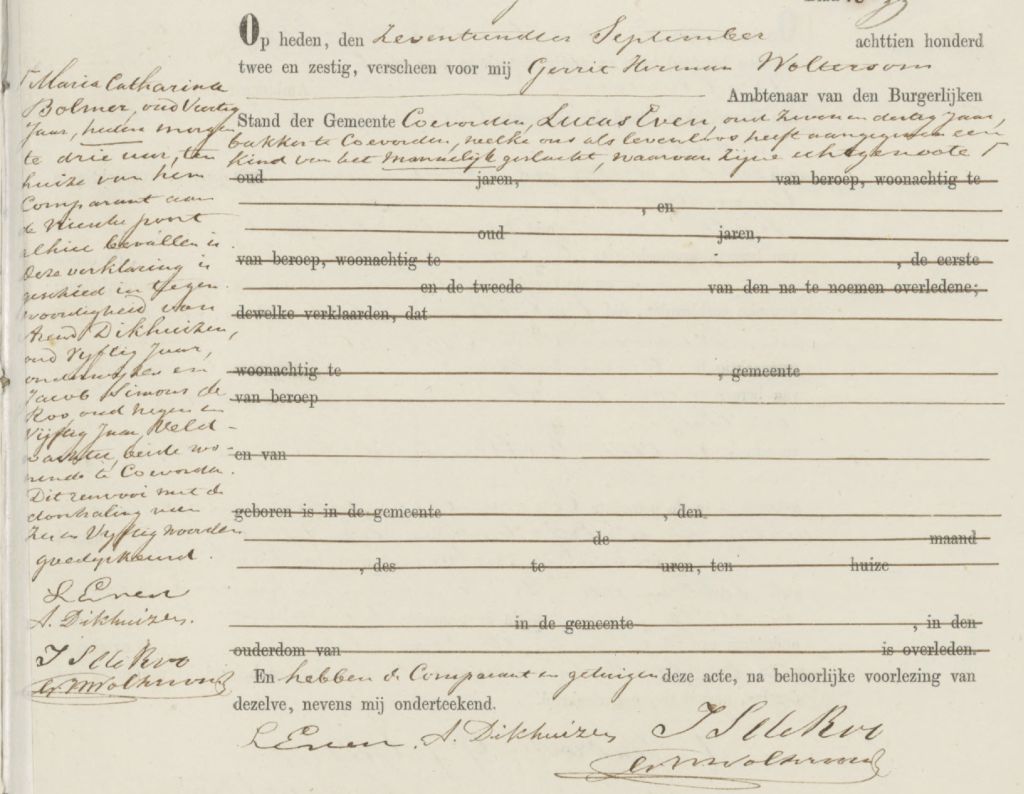 Op heden, den Zeventienden September achttien honderd
twee en zestig, verscheen voor mij Gerrit Herman Woltersom
Ambtenaar van den Burgerlijken
Stand der Gemeente Coevorden, Lucas Even, oud zeven en dertig jaar,
bakker te Coevorden, welke ons als levenloos heeft aangegeven een
kind van het mannelijk geslacht, waarvan zijne echtgenoote Γ
oud jaren, van beroep, woonachtig te
, en
oud jaren,
van beroep, woonachtig te , de eerste
en de tweede van den na te noemen overledene;
dewelke verklaarden, dat
woonachtig te , gemeente
van beroep
en van
geboren is in de gemeente , den
de maand
, des te uren, ten huize
in de gemeente , in den
ouderdom van is overleden.
En hebben de Comparant en getuigen deze acte, na behoorlijke voorlezing van
dezelve, nevens mij onderteekend.
L Even. A. Dikhuizen J S de Roo
Γ Maria Catharina
Bolmer, oud Veertig
Jaar, heden morgen
te drie uur, ten
huize van hem
Comparant aan
de Vriesche poort
alhier bevallen is.
Deze verklaring is
geschied in tegen
woordigheid van
Arend Dikhuizen,
oud Vijftig Jaar,
onderwijzer en
Jacob Simons de
Roo, oud negen en
Vijftig Jaar, Veld-
wachter, beide wo-
nende te Coevorden.
Dit renvooi met de
doorhaling van
Zes en Vijftig woorden
goedgekeurd.
L Even
A. Dikhuizen.
J S de Roo